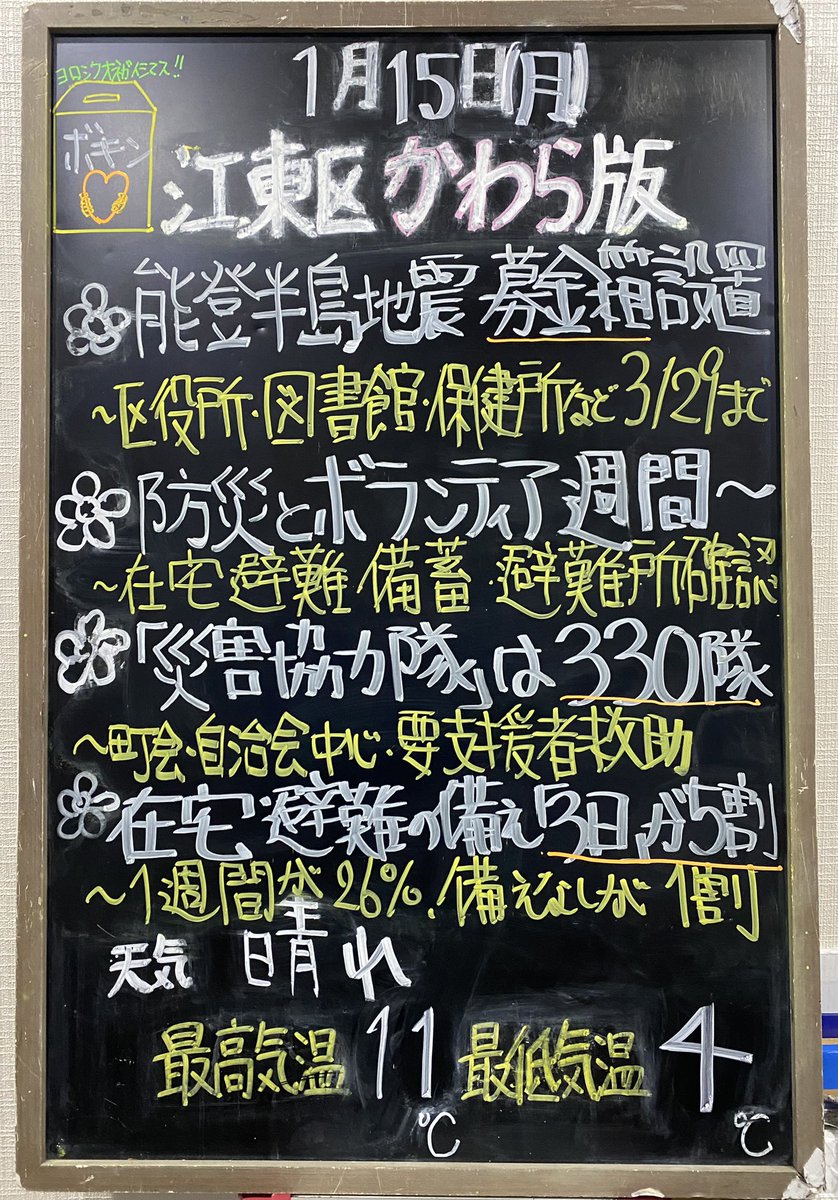 ヨロシクオネガイシマス!!
ボキン
1月15日(月)
江東区かわら版
能登半島地震 募金箱設置
～区役所・図書館・保健所など3/29まで
防災とボランティア週間～
～在宅避難 備蓄・避難所確認
「災害協力隊」は330隊
～町会・自治会中心・要支援者救助
在宅避難の備え「3日」が5割
～1週間が26%！備えなしが1割
天気 晴れ
最高気温 11℃ 最低気温 4℃